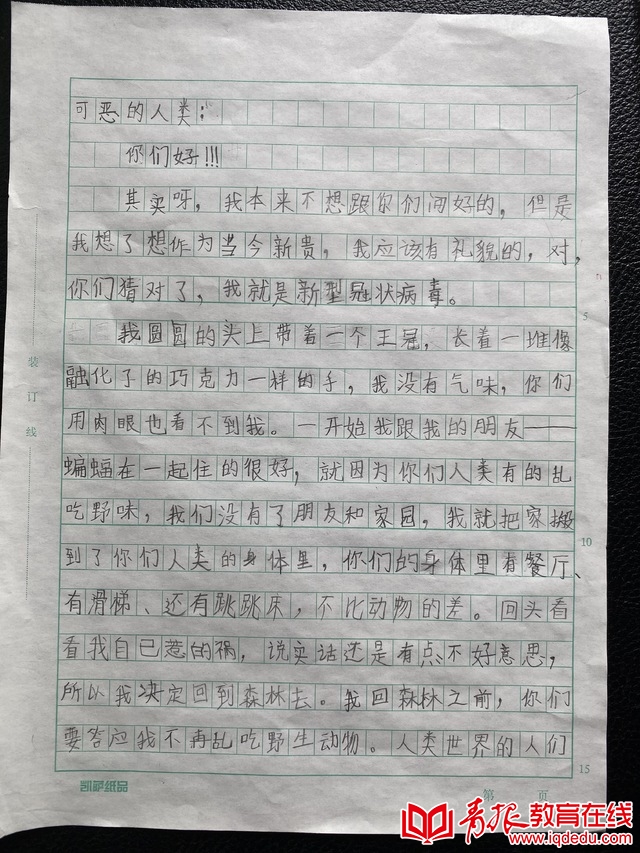 可恶的人类：
你们好!!!
其实呀，我本来不想跟你们问好的，但是
我想了想作为当今新贵，我应该有礼貌的，对，
你们猜对了，我就是新型冠状病毒。
我圆圆的头上带着一个王冠，长着一堆像
融化了的巧克力一样的手，我没有气味，你们
用肉眼也看不到我。一开始我跟我的朋友——
蝙蝠在一起住的很好，就因为你们人类有的乱
吃野味，我们没有了朋友和家园，我就把家搬
到了你们人类的身体里，你们的身体里有餐厅、
有滑梯、还有跳跳床，不比动物的差。回头看
看我自己惹的祸，说实话还是有点不好意思，
所以我决定回到森林去。我回森林之前，你们
要答应我不再乱吃野生动物。人类世界的人们
装订线
5
10
15
凯萨纸品
第 页
青报教育在线
www.iqdedu.com